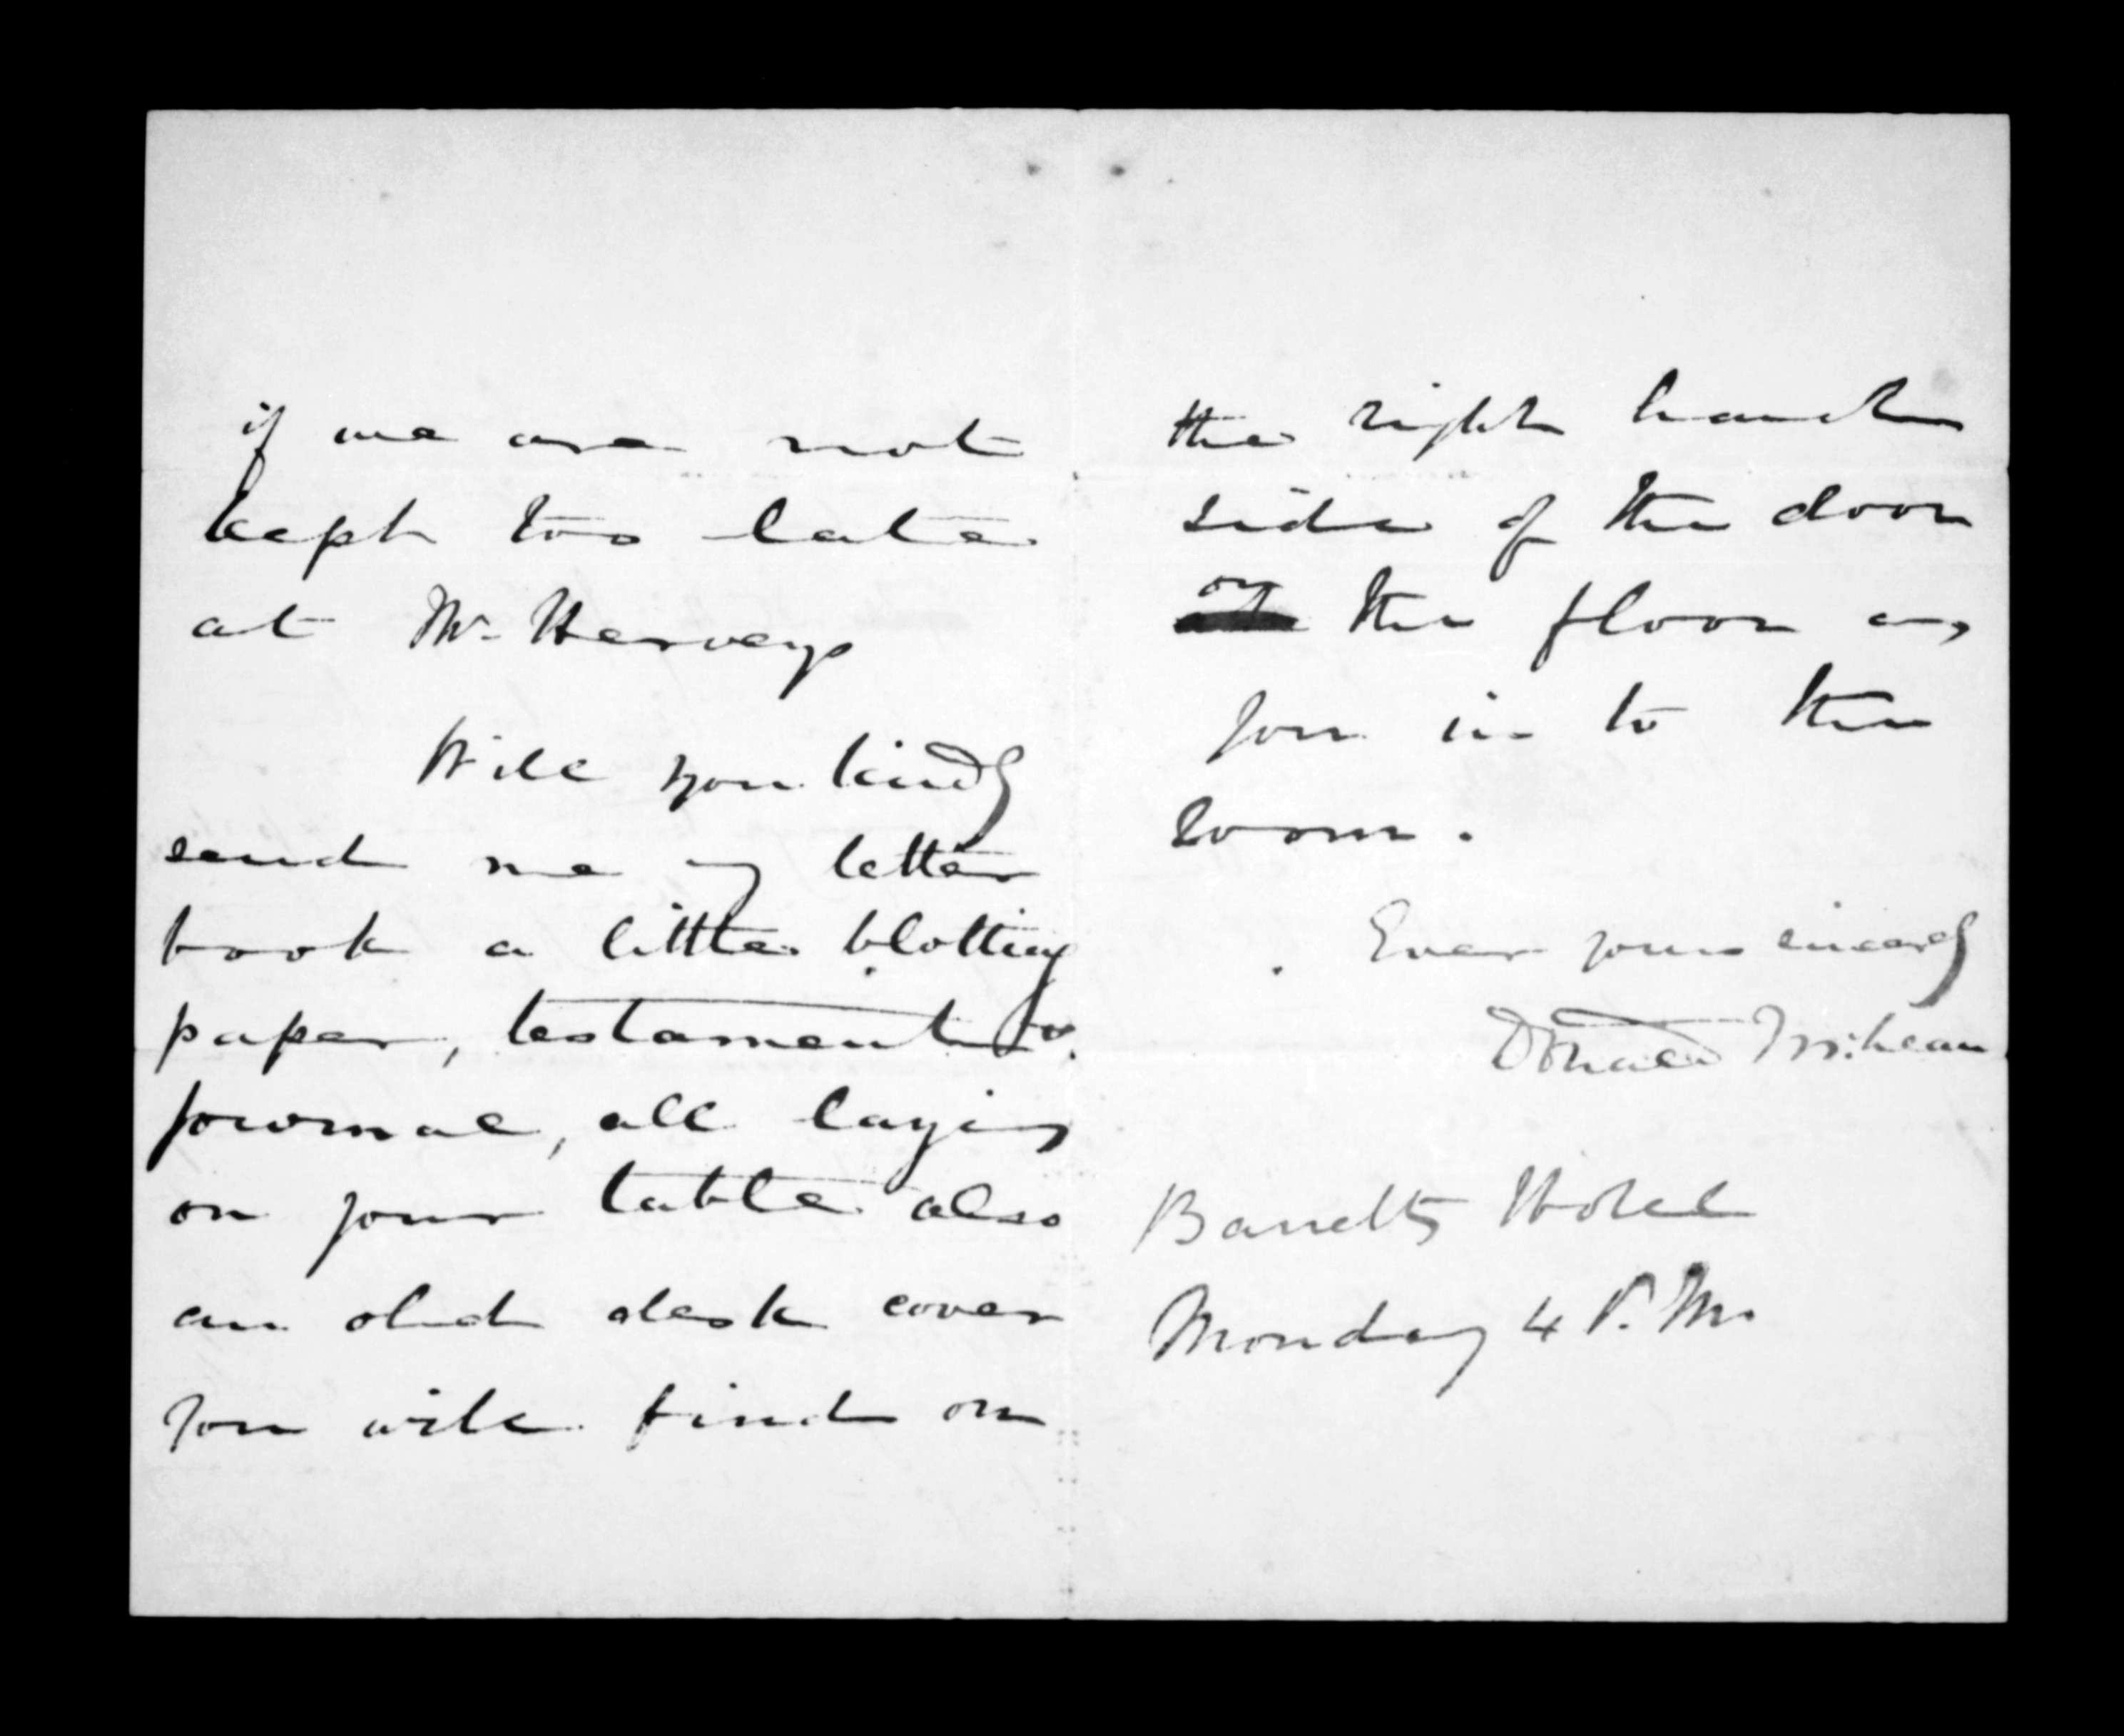 if we are not
kept too late
at Mr Herveys
Will you kindly
send me my letter
book a little blotting
paper, testament &
journal, all laying
on your table also
an old desk cover
you will find on
the right hand
side of the door
on
the floor as
you in to the
room.
Ever yours sincerely
Donald McLean
Barretts Hotel
Monday 4 P.M.